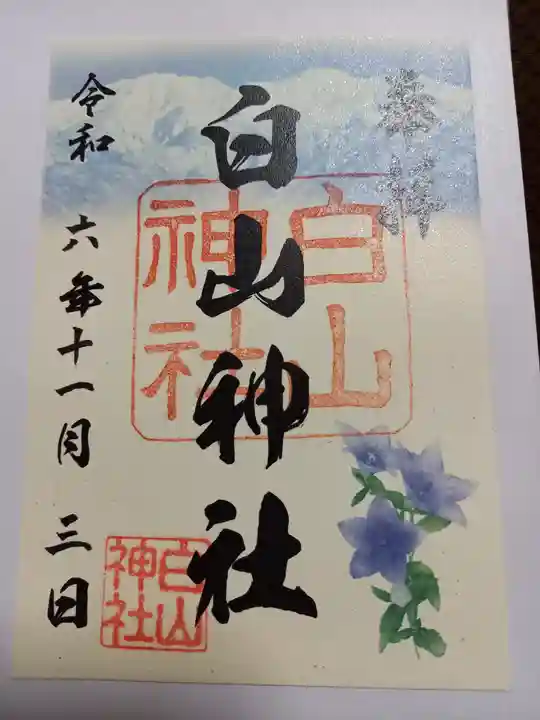 奉拝
白山神社
白山
神社
令和 六年十一月 三日
白山
神社